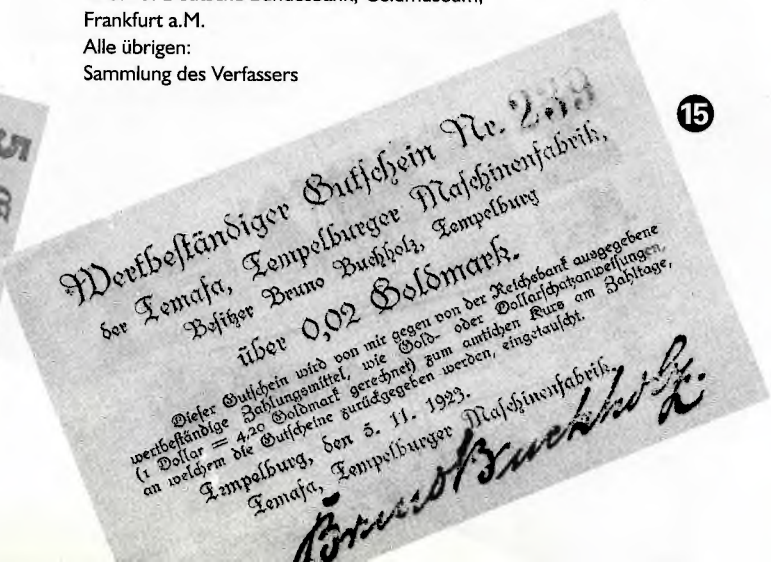 Frankfurt a.M.
Alle übrigen:
Sammlung des Verfassers
15
Wertbeständiger Gutschein Nr. 239
der Temafa, Tempelburger Maschinenfabrik,
Besitzer Bruno Buchholz, Tempelburg
über 0,02 Goldmark.
Dieser Gutschein wird von mir gegen von der Reichsbank ausgegebene
wertbeständige Zahlungsmittel, wie Gold- oder Dollarschatzanweisungen,
(1 Dollar = 4,20 Goldmark gerechnet) zum amtlichen Kurs am Zahltage,
an welchem die Gutscheine zurückgegeben werden, eingetauscht.
Tempelburg, den 5. 11. 1923.
Temafa, Tempelburger Maschinenfabrik.
Bruno Buchholz.